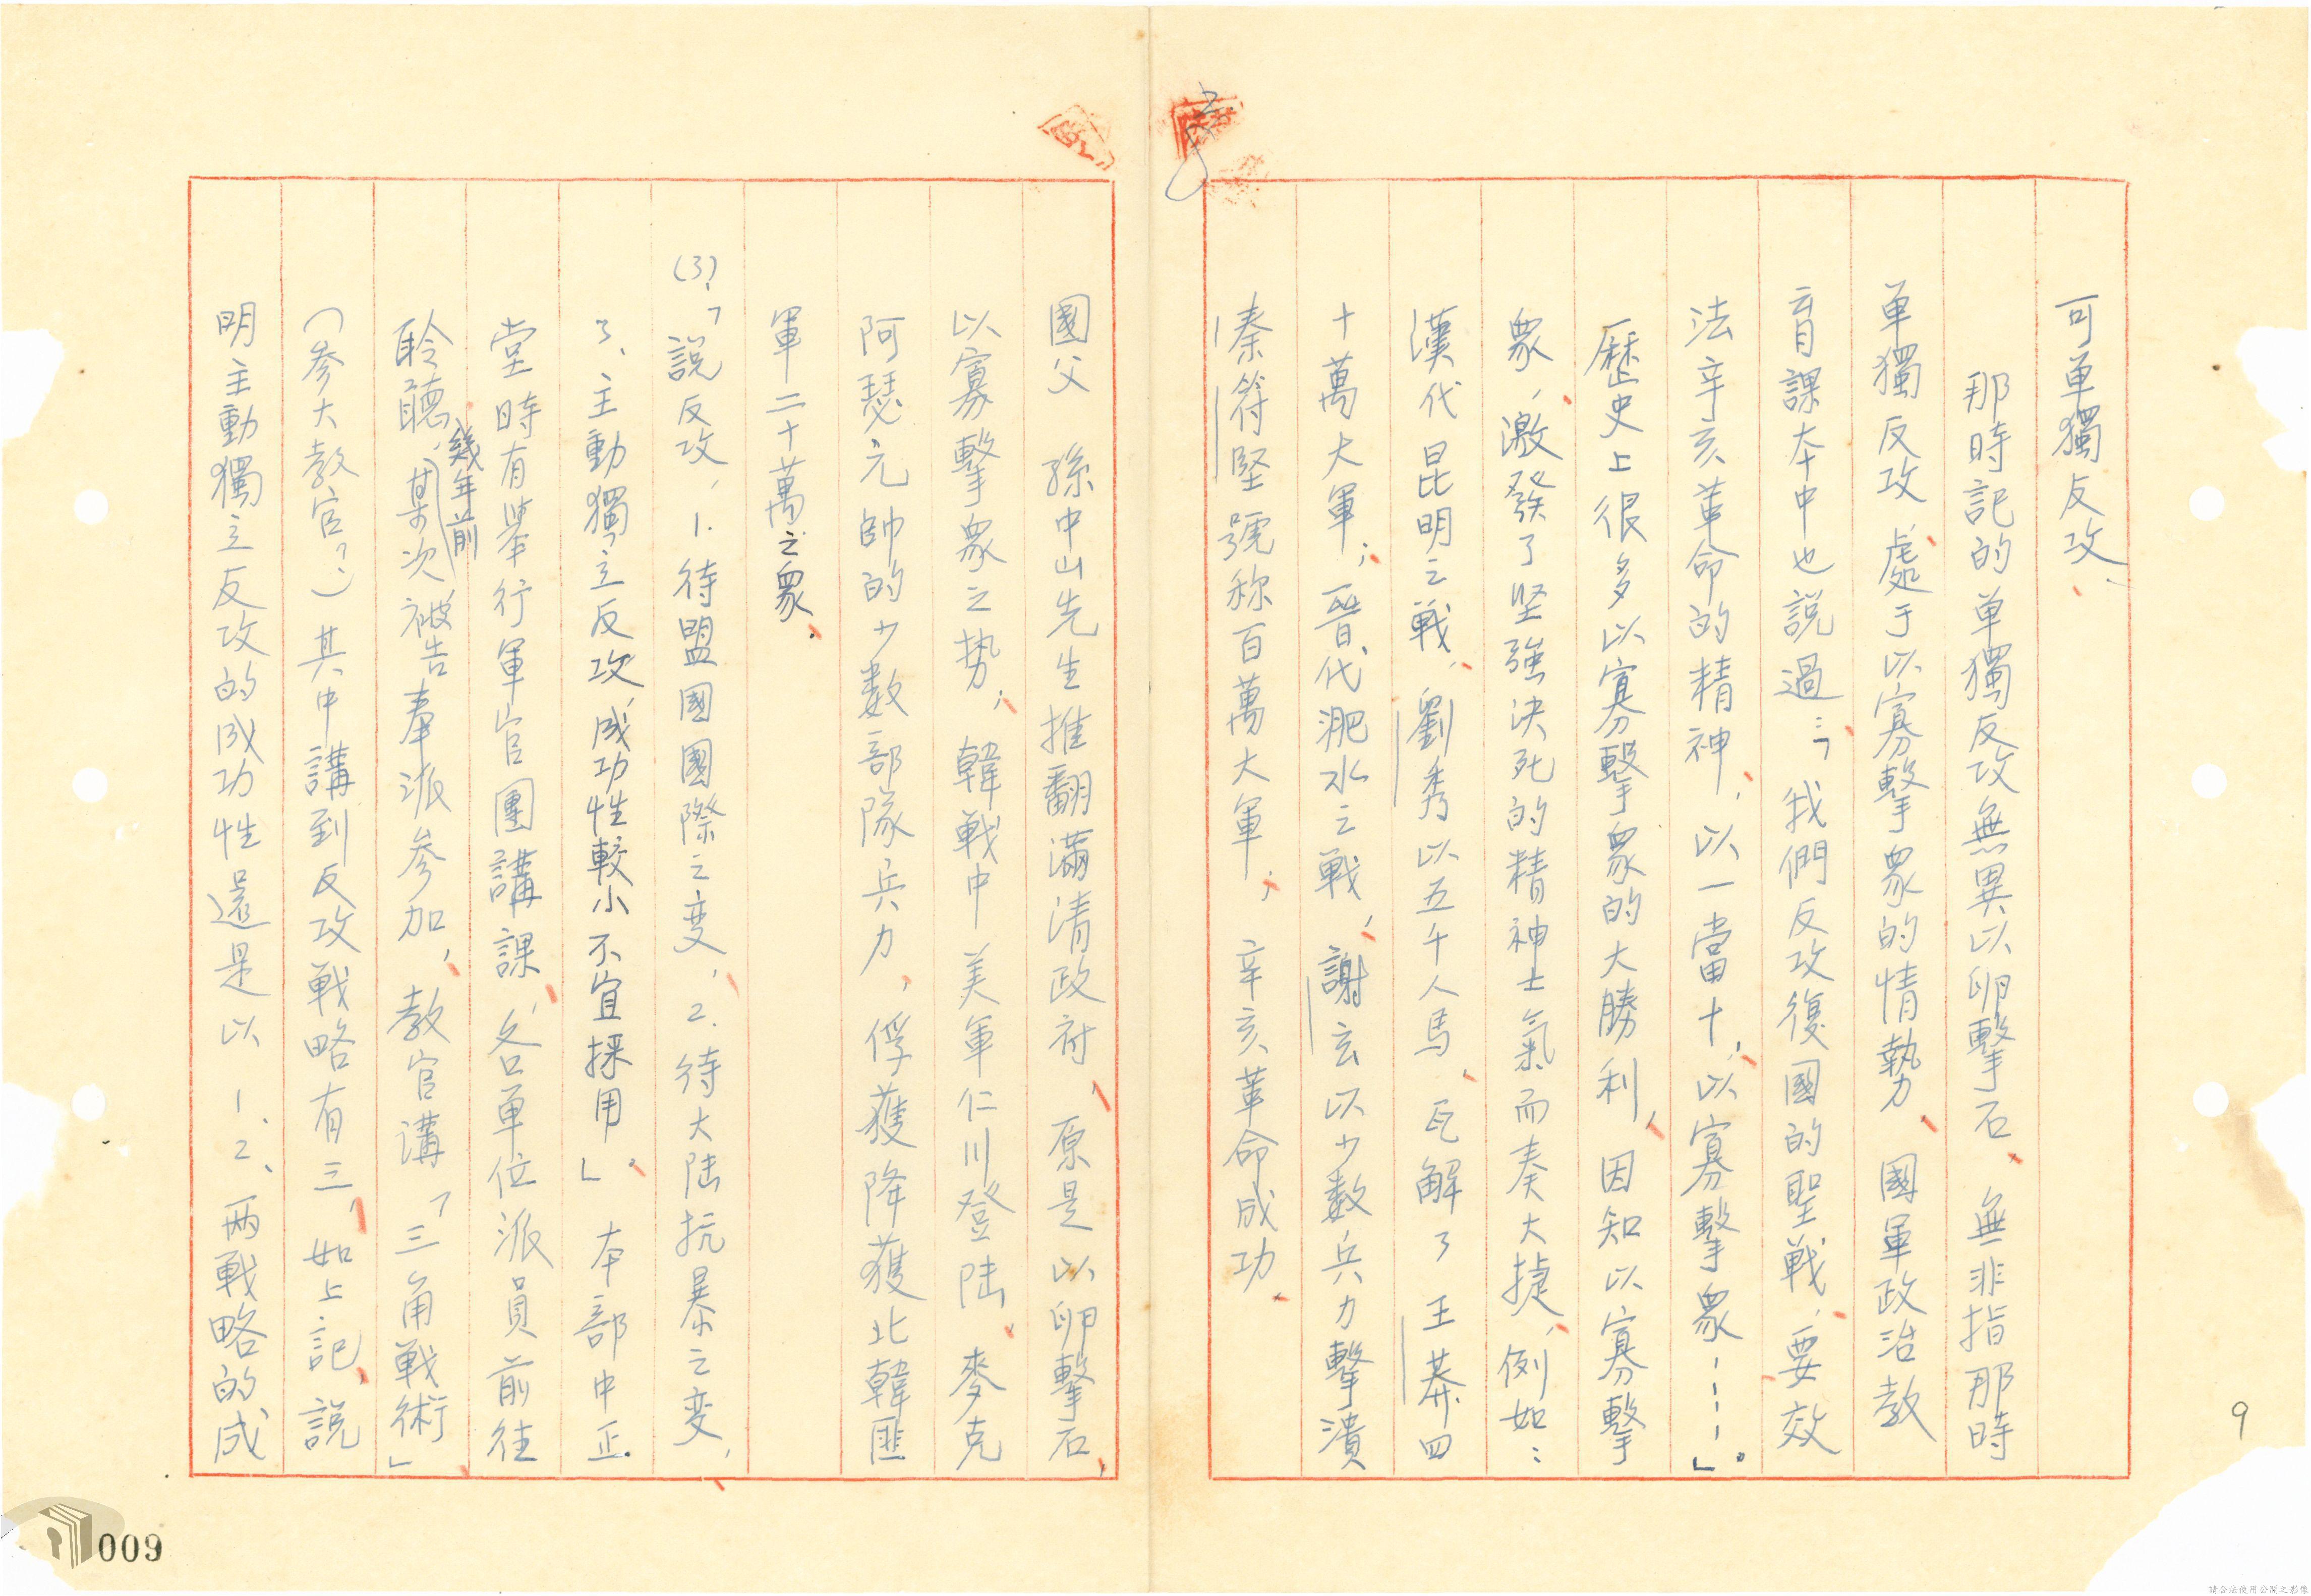 可單獨反攻、
那時記的单獨反攻無異以卵擊石、無非指那時
单獨反攻、處于以寡擊衆的情勢、國軍政治教
育課本中也說過:「我們反攻復國的聖戰，要效
法辛亥革命的精神，以一當十，以寡擊衆……」。
歷史上很多以寡擊衆的大勝利，因知以寡擊
衆，激發了坚強決死的精神士氣而奏大捷，例如：
漢代昆明之戰，劉秀以五千人馬，瓦解了王莽四
十萬大軍；晉代淝水之戰，謝玄以少數兵力擊潰
秦符堅號称百萬大軍；辛亥革命成功、
國父　孫中山先生推翻滿清政府，原是以卵擊石，
以寡擊衆之势；韓戰中美軍仁川登陆，麥克
阿瑟元帥的少數部隊兵力，俘獲降獲北韓匪
軍二十萬之衆、
(3)「說反攻，1.待盟國國際之变，2.待大陆抗暴之变，
3、主動獨立反攻，成功性較小不宜採用」。本部中正
堂時有舉行軍官團講課，各单位派員前往
聆聽，某次被告奉派參加，教官講「三角戰術」
幾年前
(參大教官？)其中講到反攻戰略有三，如上記，說
明主動獨立反攻的成功性還是以 1、2、兩戰略的成
9
009
請合法使用公開之影像